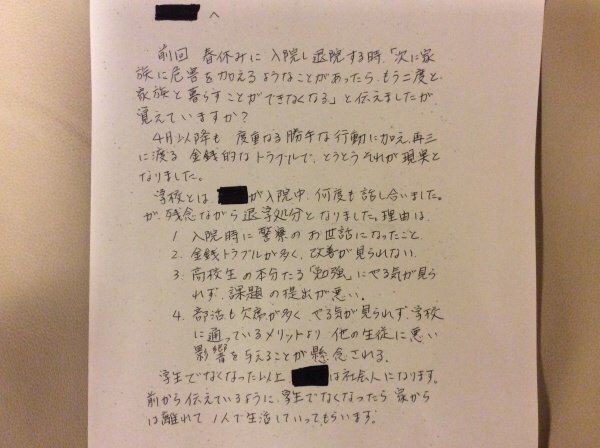 へ
前回 春休みに入院し退院する時、「次に家
族に危害を加えるようなことがあったら、もう二度と、
家族と暮らすことができなくなる」と伝えましたが、
覚えていますか?
4月以降も 度重なる勝手な行動に加え、再三
に渡る 金銭的なトラブルで、とうとうそれが現実と
なりました。
学校とは、が入院中、何度も話し合いました。
が、残念ながら退学処分となりました。理由は、
1. 入院時に警察のお世話になったこと。
2. 金銭トラブルが多く、改善が見られない。
3. 高校生の本分たる「勉強」にやる気が見ら
れず、課題の提出が悪い。
4. 部活も欠席が多く、やる気が見られず、学校
に通っているメリットより 他の生徒に悪い
影響を与えることが懸念される。
学生でなくなった以上、は社会人になります。
前から伝えているように、学生でなくなったら 家から
は離れて 1人で生活していってもらいます。